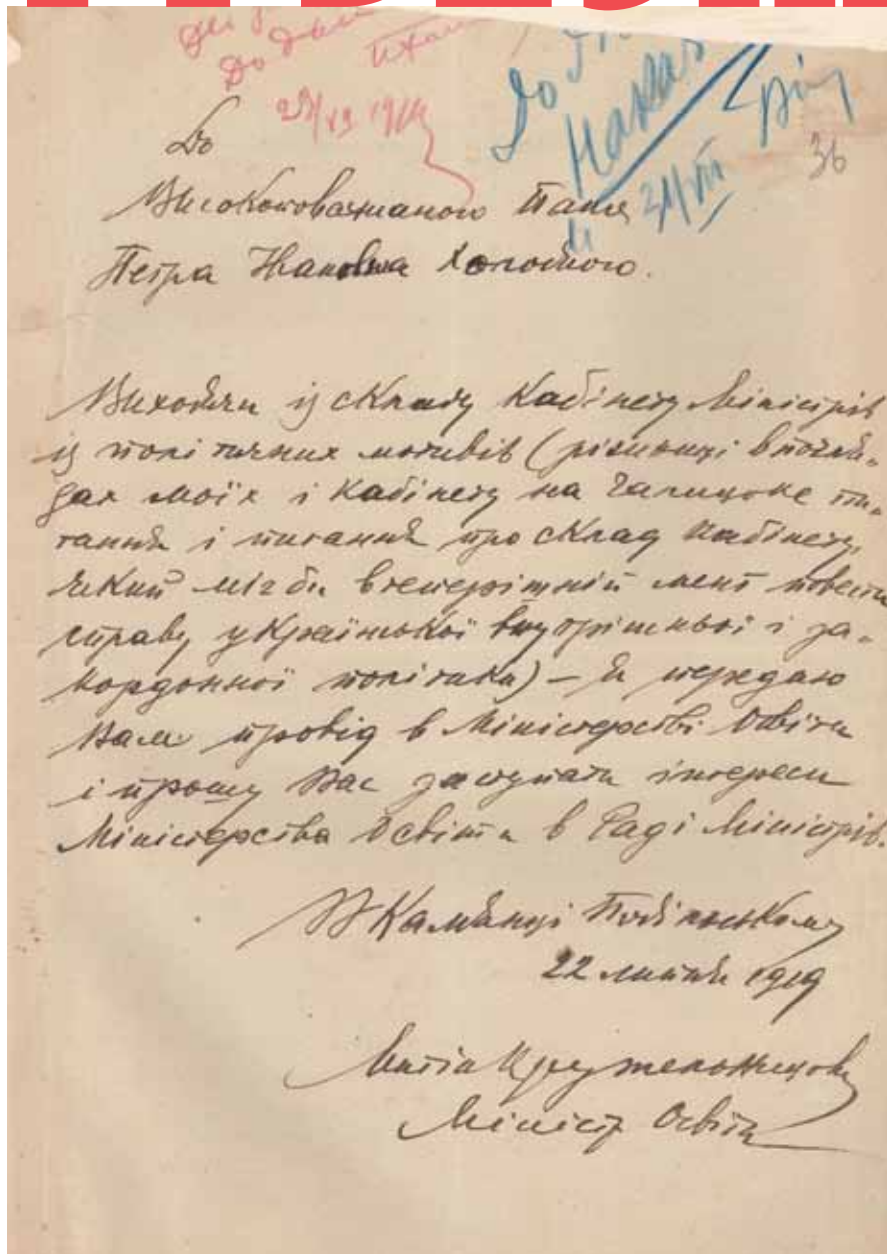 До
29/VII 1919
До
Наказ
24/VII
36
До
Високоповажаного Пана
Петра Івановича Холодного.
Виходячи із складу Кабінету Міністрів
із політичних мотивів (ріжниці в погля-
дах моїх і Кабінету на Галицьке пи-
тання і питання про склад Кабінету,
який міг би в теперішній мент повести
справу української внутрішньої і за-
кордонної політики) – я передаю
Вам провід в Міністерстві Освіти
і прошу Вас заступати інтереси
Міністерства Освіти в Раді Міністрів.
В Камянці Подільському
22 липня 1919
Антін Крушельницький
Міністр Освіти